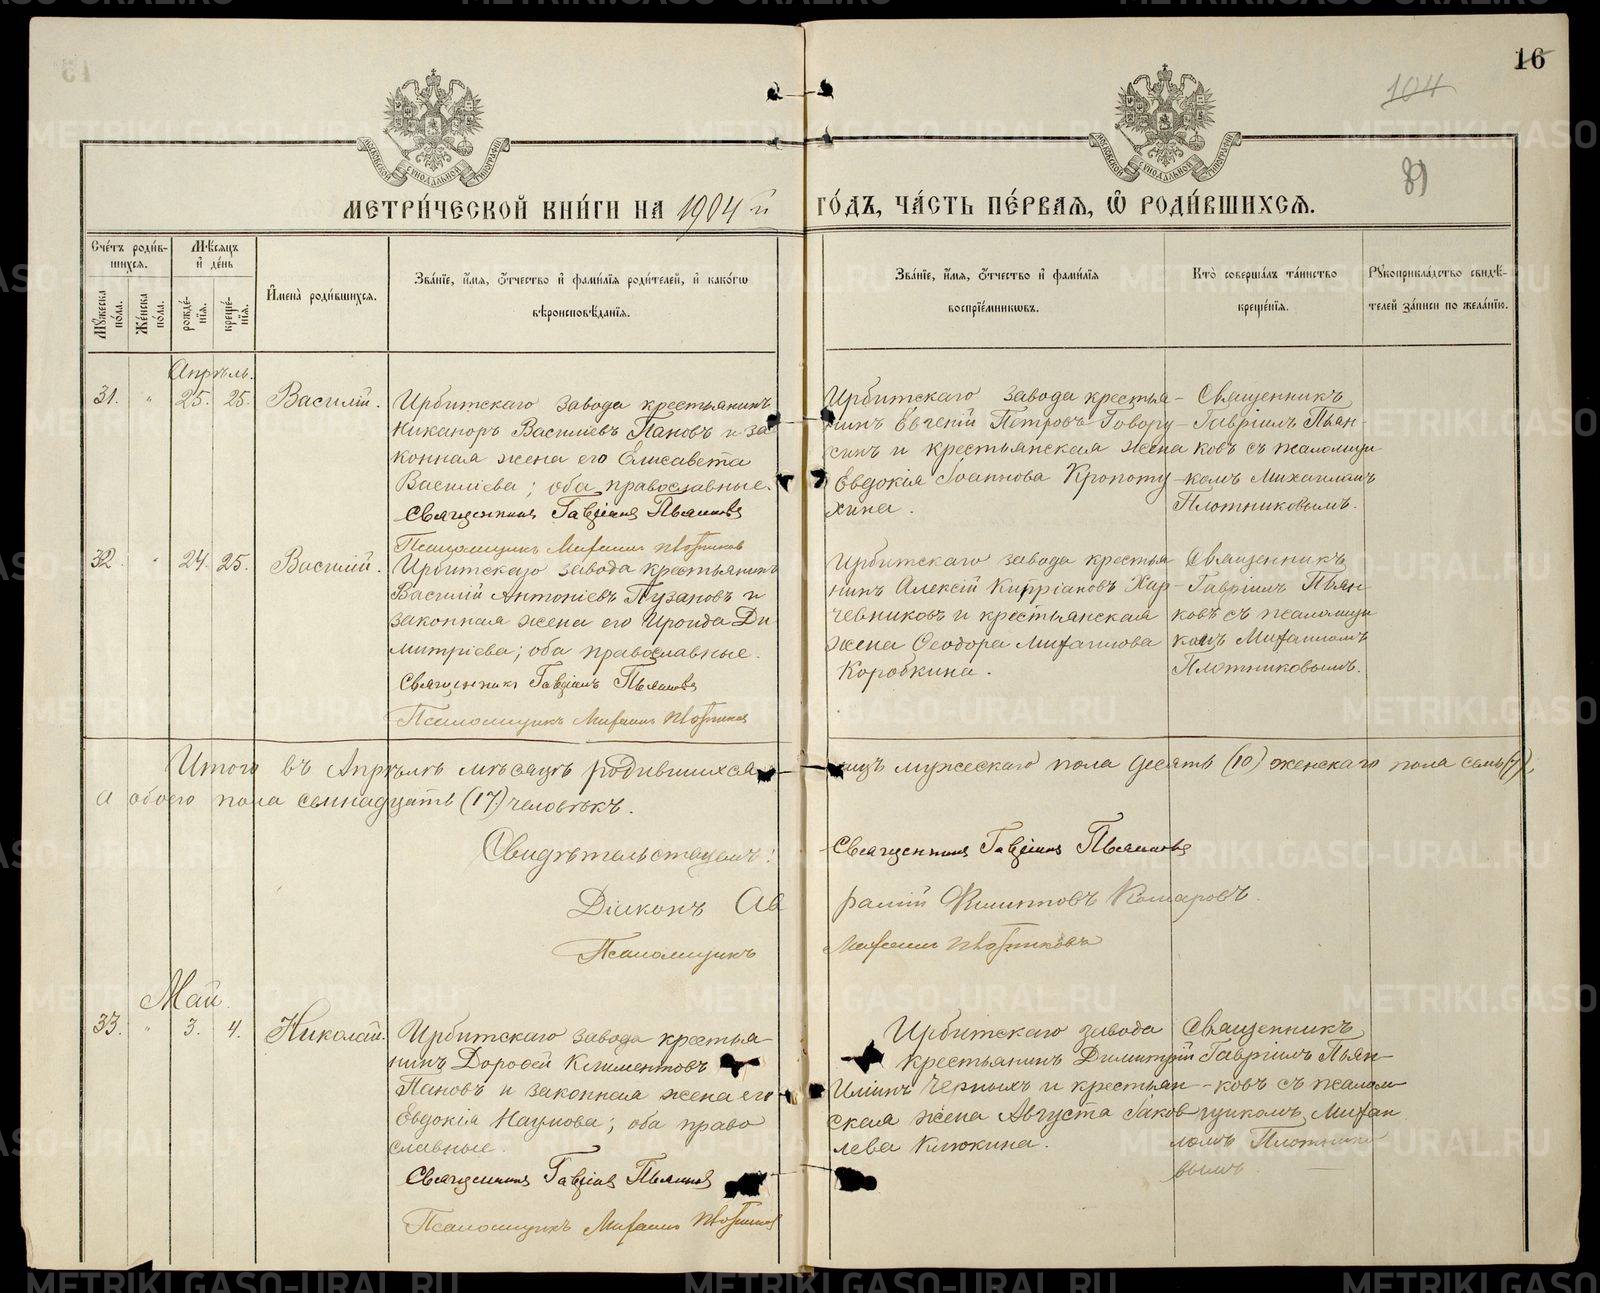 16
104
МЕТРИ́ЧЕСКОЙ КНИ́ГИ НА 1904 й ГО́ДЪ, ЧА́СТЬ ПЕ́РВАѦ, Ѿ РОДИ́ВШИХСѦ.
Сче́тъ роди́вшихсѧ.
Мꙋ́жеска по́ла.
Же́нска по́ла.
Мѣ́сѧцъ и҆ де́нь
рожде́нїѧ.
креще́нїѧ.
И҆мена̀ роди́вшихсѧ.
Зва́нїе, и҆́мѧ, ѻ҆́тчество и҆ фами́лїѧ роди́телей, и҆ како́гѡ
вѣроисповѣ́данїѧ.
Зва́нїе, и҆́мѧ, ѻ҆́тчество и҆ фами́лїѧ
воспрїе́мникѡвъ.
Кто̀ соверша́лъ та́инство
креще́нїѧ.
Рꙋкоприкла́дство свидѣ́-
телей за́писи по жела́нїю.
Апрѣль.
31. " 25. 25. Василій.
Ирбитскаго завода крестьянинъ
Никаноръ Василіевъ Пановъ и за
конная жена его Елисавета
Василіева; оба православные.
Священникъ Гавріилъ Пьянковъ
Псаломщикъ Михаилъ Плотников
Ирбитскаго завода крестья-
нинъ Евгеній Петровъ Говору-
хинъ и крестьянская жена
Евдокія Іоаннова Кропоту-
хина.
Священникъ
Гавріилъ Пьян-
ковъ съ псаломщи
комъ Михаиломъ
Плотниковымъ.
32. " 24. 25. Василій.
Ирбитскаго завода крестьянинъ
Василій Антоніевъ Пузановъ и
законная жена его Ироида Ди
митріева; оба православные.
Священникъ Гавріилъ Пьянковъ
Псаломщикъ Михаилъ Плотников
Ирбитскаго завода крестья
нинъ Алексій Кипріановъ Хар-
чевниковъ и крестьянская
жена Ѳеодора Михаилова
Коробкина.
Священникъ
Гавріилъ Пьян
ковъ съ псаломщи
комъ Михаиломъ
Плотниковымъ.
Итого въ Апрѣлѣ мѣсяцѣ родившихся мужескаго пола десять (10) женскаго пола семь (7),
а обоего пола семнадцать (17) человѣкъ.
Свидѣтельствуемъ:
Священникъ Гавріилъ Пьянковъ
Діаконъ Аврамій Филипповъ Комаровъ.
Псаломщикъ Михаилъ Плотниковъ
Май.
33. " 3. 4. Николай.
Ирбитскаго завода крестья-
нинъ Дорофей Климентовъ
Пановъ и законная жена его
Евдокія Наумова; оба право
славные.
Священникъ Гавріилъ Пьянковъ
Псаломщикъ Михаилъ Плотников
Ирбитскаго завода
крестьянинъ Димитрій
Иліинъ Черныхъ и крестьян-
ская жена Августа Іаков
лева Клюкина.
Священникъ
Гавріилъ Пьян-
ковъ съ псалом-
щикомъ Михаи
ломъ Плотнико
вымъ.
METRIKI.GASO-URAL.RU